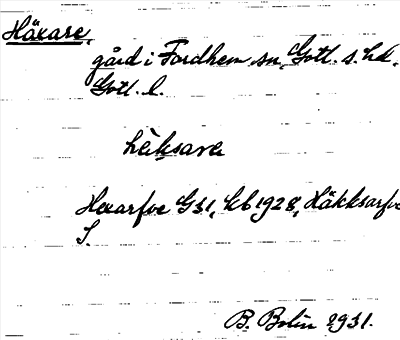 Häxare,
gård i Fardhem sn, Gotl. s. hd.
Gotl. l.
häksara
Hexarfve GS1, Kb 1928, Häkksarfve
S.
B. Bolin 1931.